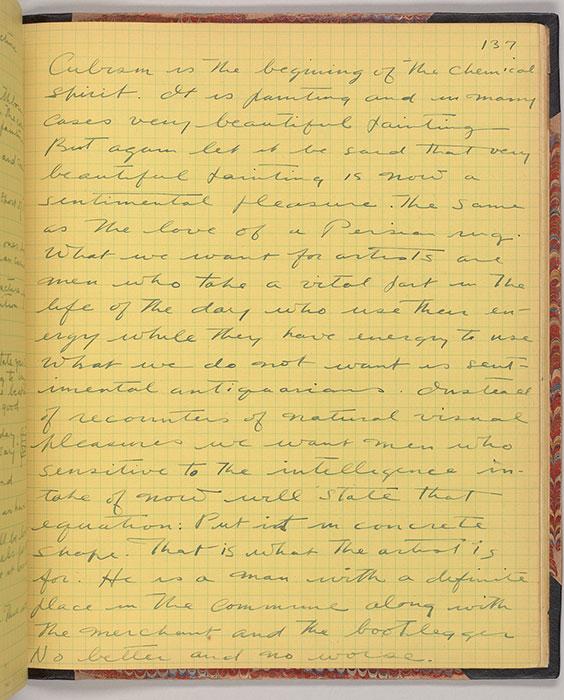 137
Cubism is the begining of the chemical
spirit. It is painting and in many
cases very beautiful painting
But again let it be said that very
beautiful painting is now a
sentimental pleasure. The same
as the love of a Persian rug.
What we want for artists are
men who take a vital part in the
life of the day who use their en-
ergy while they have energy to use
What we do not want is sent-
imental antiquarians. Instead
of recounters of natural visual
pleasures we want men who
sensitive to the intelligence in-
take of now will state that
equation: Put it in concrete
shape. That is what the artist is
for. He is a man with a definite
place in the commune along with
the merchant and the bootlegger
No better and no worse.